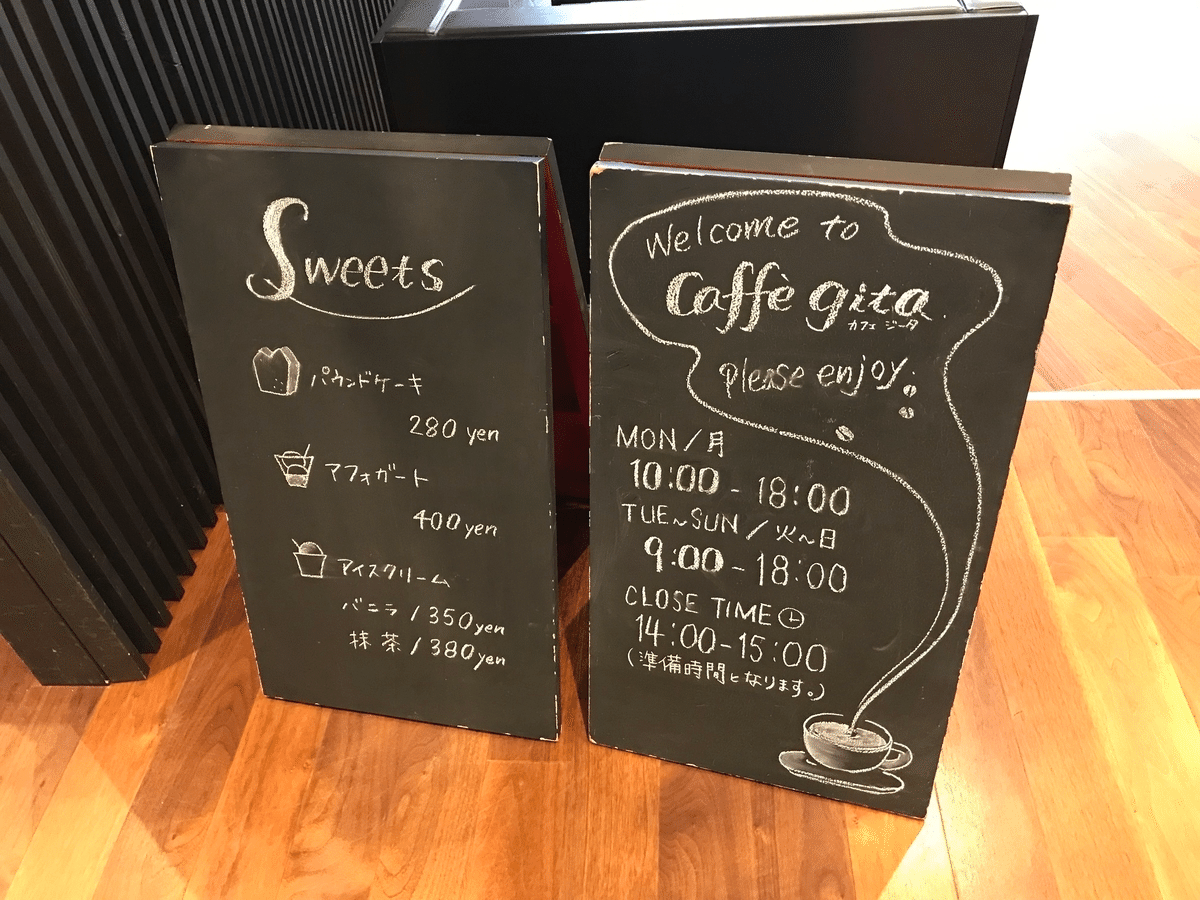 Sweets
パウンドケーキ
280 yen
アフォガート
400 yen
アイスクリーム
バニラ / 350 yen
抹茶 / 380 yen
Welcome to
Caffè gita
カフェ ジータ
please enjoy.
MON / 月
10:00 - 18:00
TUE~SUN / 火~日
9:00 - 18:00
CLOSE TIME
14:00-15:00
(準備時間となります。)